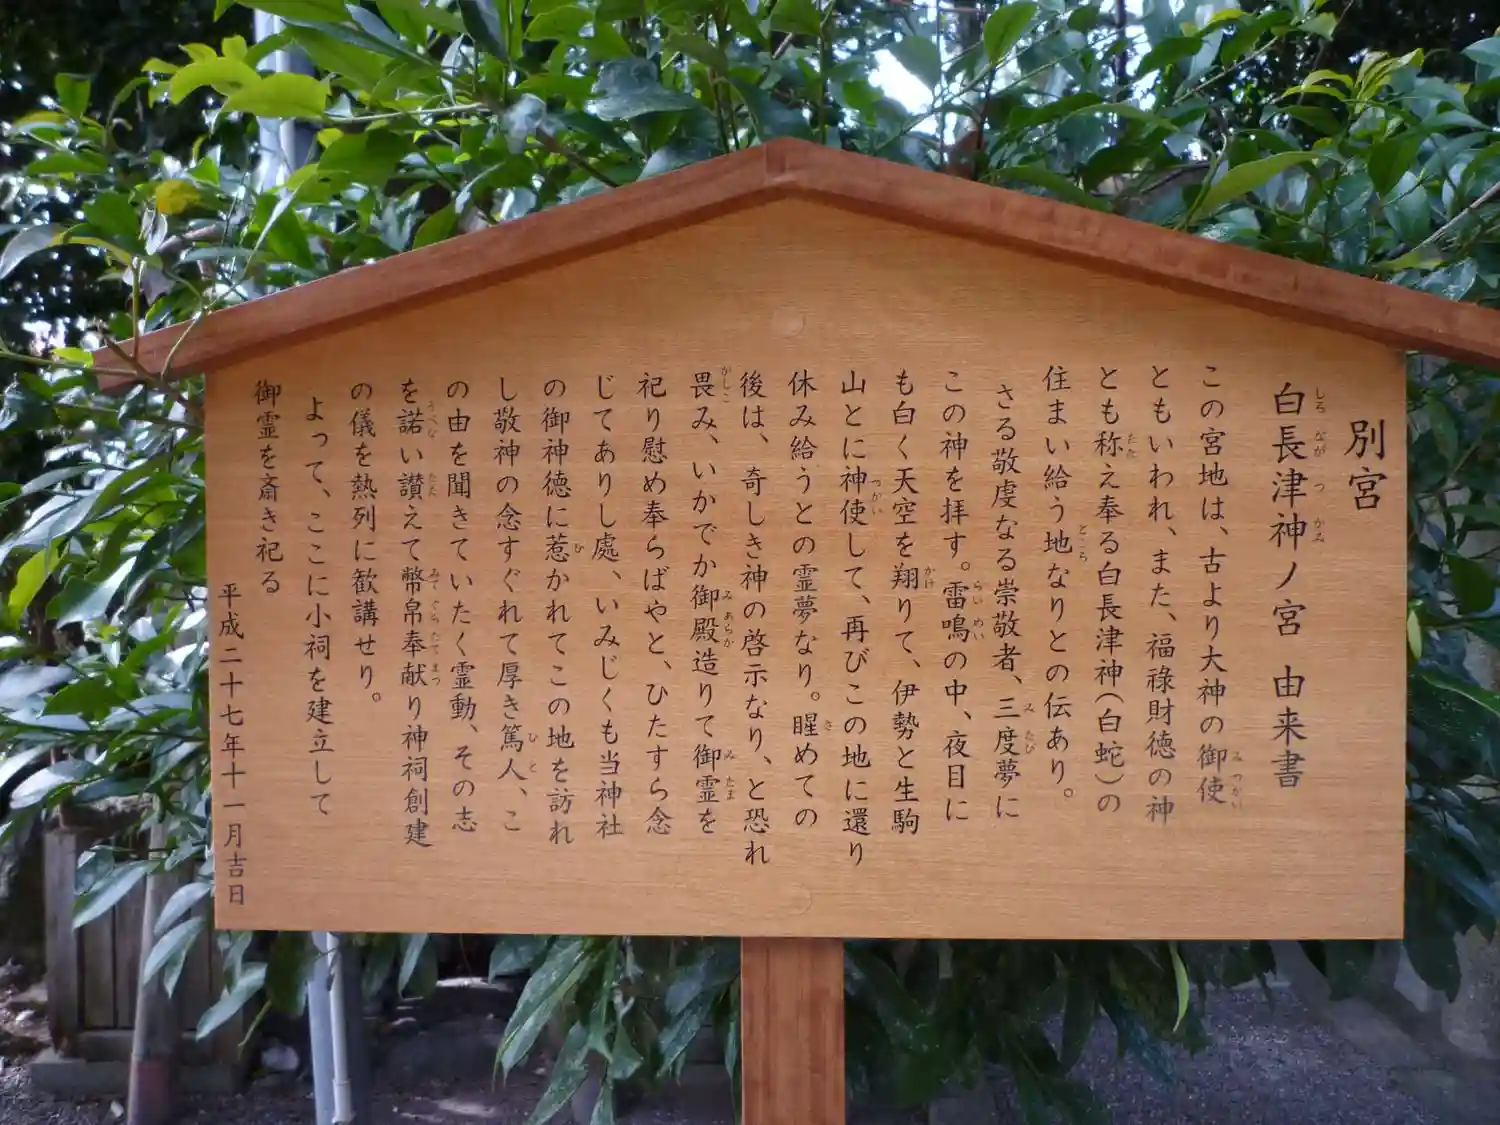 別宮
白長津神ノ宮 由来書
この宮地は、古より大神の御使
ともいわれ、また、福祿財徳の神
とも称え奉る白長津神(白蛇)の
住まい給う地なりとの伝あり。
さる敬虔なる崇敬者、三度夢に
この神を拝す。雷鳴の中、夜目に
も白く天空を翔りて、伊勢と生駒
山とに神使して、再びこの地に還り
休み給うとの霊夢なり。醒めての
後は、奇しき神の啓示なり、と恐れ
畏み、いかでか御殿造りて御霊を
祀り慰め奉らばやと、ひたすら念
じてありし處、いみじくも当神社
の御神徳に惹かれてこの地を訪れ
し敬神の念すぐれて厚き篤人、こ
の由を聞きていたく霊動、その志
を諾い讃えて幣帛奉献り神祠創建
の儀を熱列に歓講せり。
よって、ここに小祠を建立して
御霊を斎き祀る
平成二十七年十一月吉日